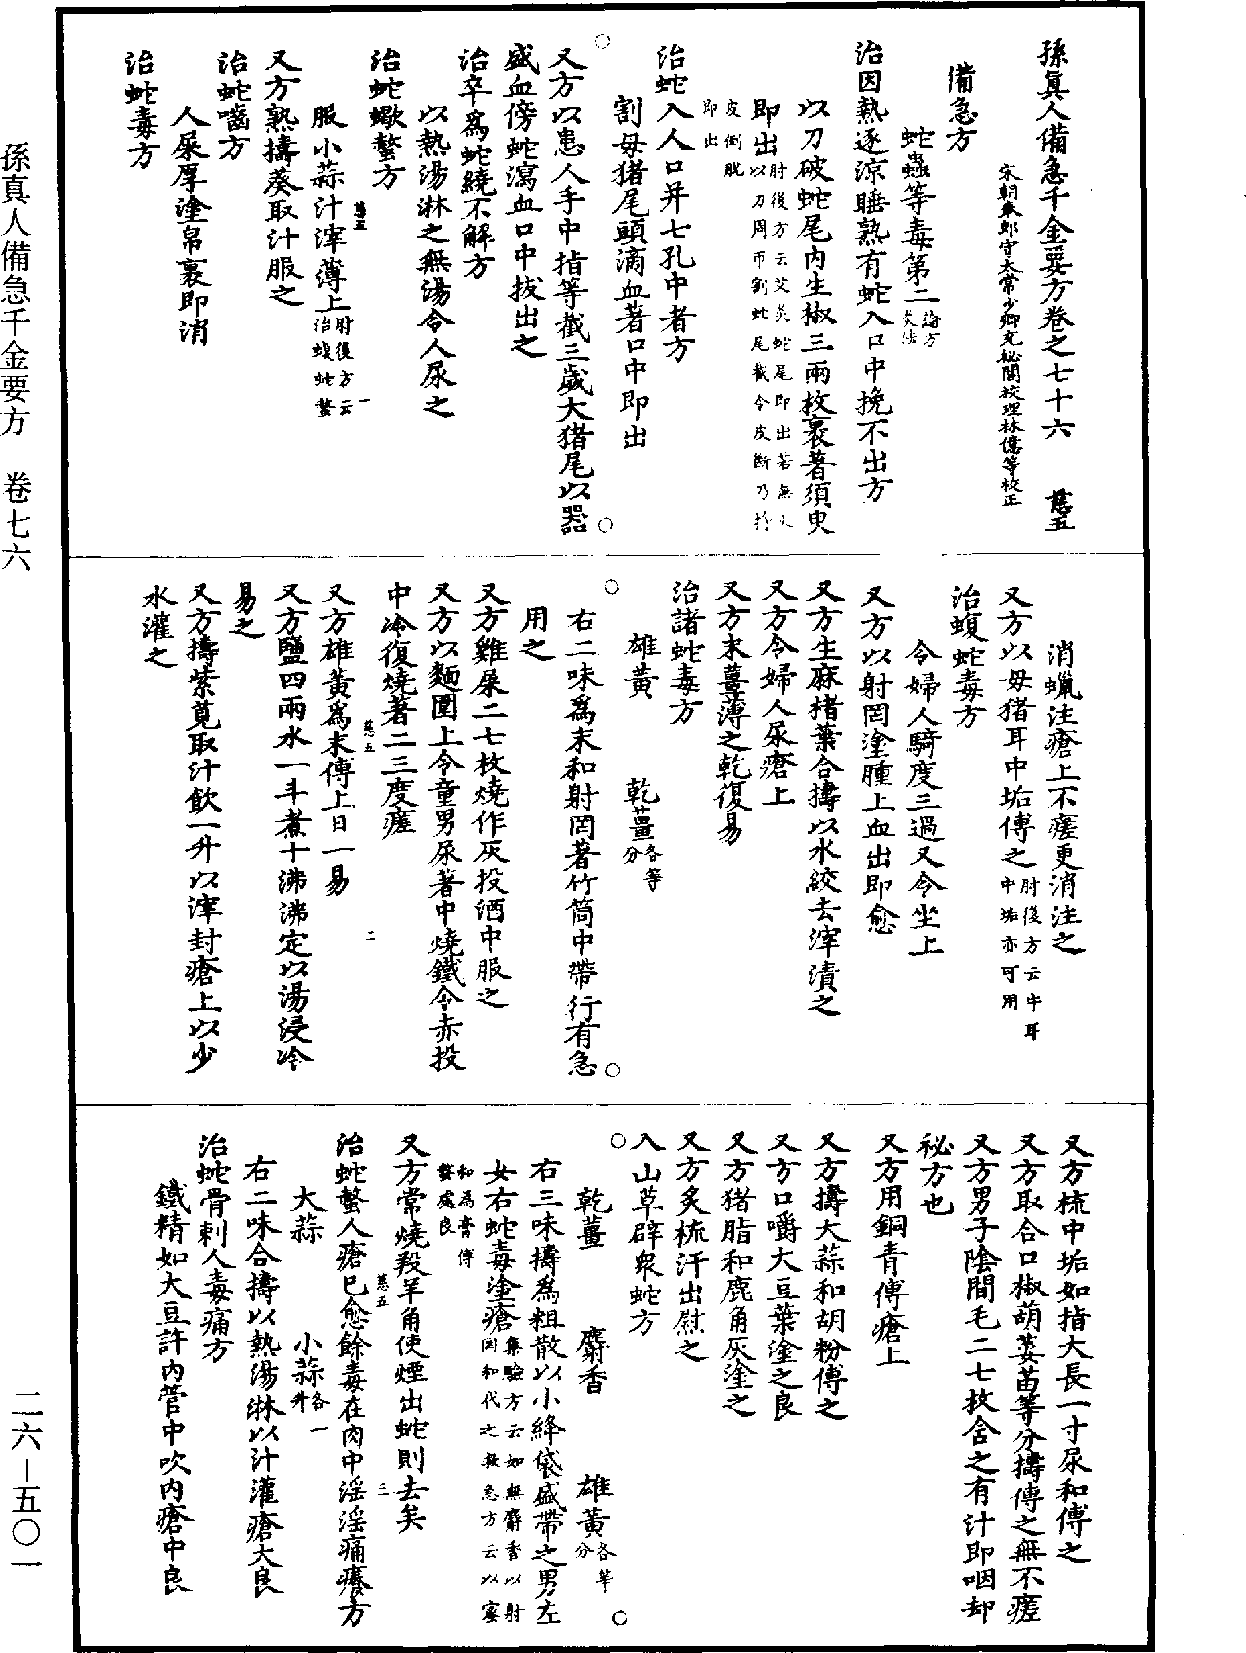 孫真人備急千金要方卷之七十六　慈五
宋朝奉郎守太常少卿充秘閣校理林億等校正
備急方
蛇蟲等毒第二論方灸法
治因熱逐涼睡熟有蛇入口中挽不出方
以刀破蛇尾内生椒三兩枚裹著須臾
即出肘後方云艾灸蛇尾即出若無火以刀周匝割蛇尾截令皮斷乃抒
皮倒脫即出
治蛇入人口并七孔中者方
割母猪尾頭滴血著口中即出
又方以患人手中指等截三歲大猪尾以器
盛血傍蛇瀉血口中拔出之
治卒爲蛇繞不解方
以熱湯淋之無湯令人尿之
治蛇蠍螫方
慈五　一
服小蒜汁滓薄上肘後方云治蝮蛇螫
又方熟擣葵取汁服之
治蛇嚙方
人屎厚塗帛裹即消
治蛇毒方
消蠟注瘡上不瘥更消注之
又方以母猪耳中垢傅之肘後方云牛耳中垢亦可用
治蝮蛇毒方
令婦人騎度三過又令坐上
又方以射罔塗腫上血出即愈
又方生麻楮葉合擣以水絞去滓漬之
又方令婦人尿瘡上
又方末薑薄之乾復易
治諸蛇毒方
雄黃　乾薑各等分
右二味爲末和射罔著竹筒中帶行有急
用之
又方雞屎二七枚燒作灰投酒中服之
又方以麵圍上令童男尿著中燒鐵令赤投
中冷復燒著二三度瘥
慈五　二
又方雄黃爲末傅上日一易
又方鹽四兩水一斗煮十沸沸定以湯浸冷
易之
又方擣紫莧取汁飲一升以滓封瘡上以少
水灌之
又方梳中垢如指大長一寸尿和傅之
又方取合口椒葫荽苗等分擣傅之無不瘥
又方男子陰間毛二七枚含之有汁即咽却
秘方也
又方用銅青傅瘡上
又方擣大蒜和胡粉傅之
又方口嚼大豆葉塗之良
又方猪脂和鹿角灰塗之
又方炙梳汗出熨之
入山草辟衆蛇方
乾薑　麝香　雄黃各等分
右三味擣爲粗散以小絳袋盛帶之男左
女右蛇毒塗瘡集驗方云如無麝香以射罔和代之救急方云以蜜
和為膏傅螫處良
又方常燒羖羊角使煙出蛇則去矣
慈五　三
治蛇螫人瘡已愈餘毒在肉中淫淫痛癢方
大蒜　小蒜各一升
右二味合擣以熱湯淋以汁灌瘡大良
治蛇骨刺人毒痛方
鐵精如大豆許内管中吹内瘡中良
孫真人備急千金要方　卷七六
二六－五〇一